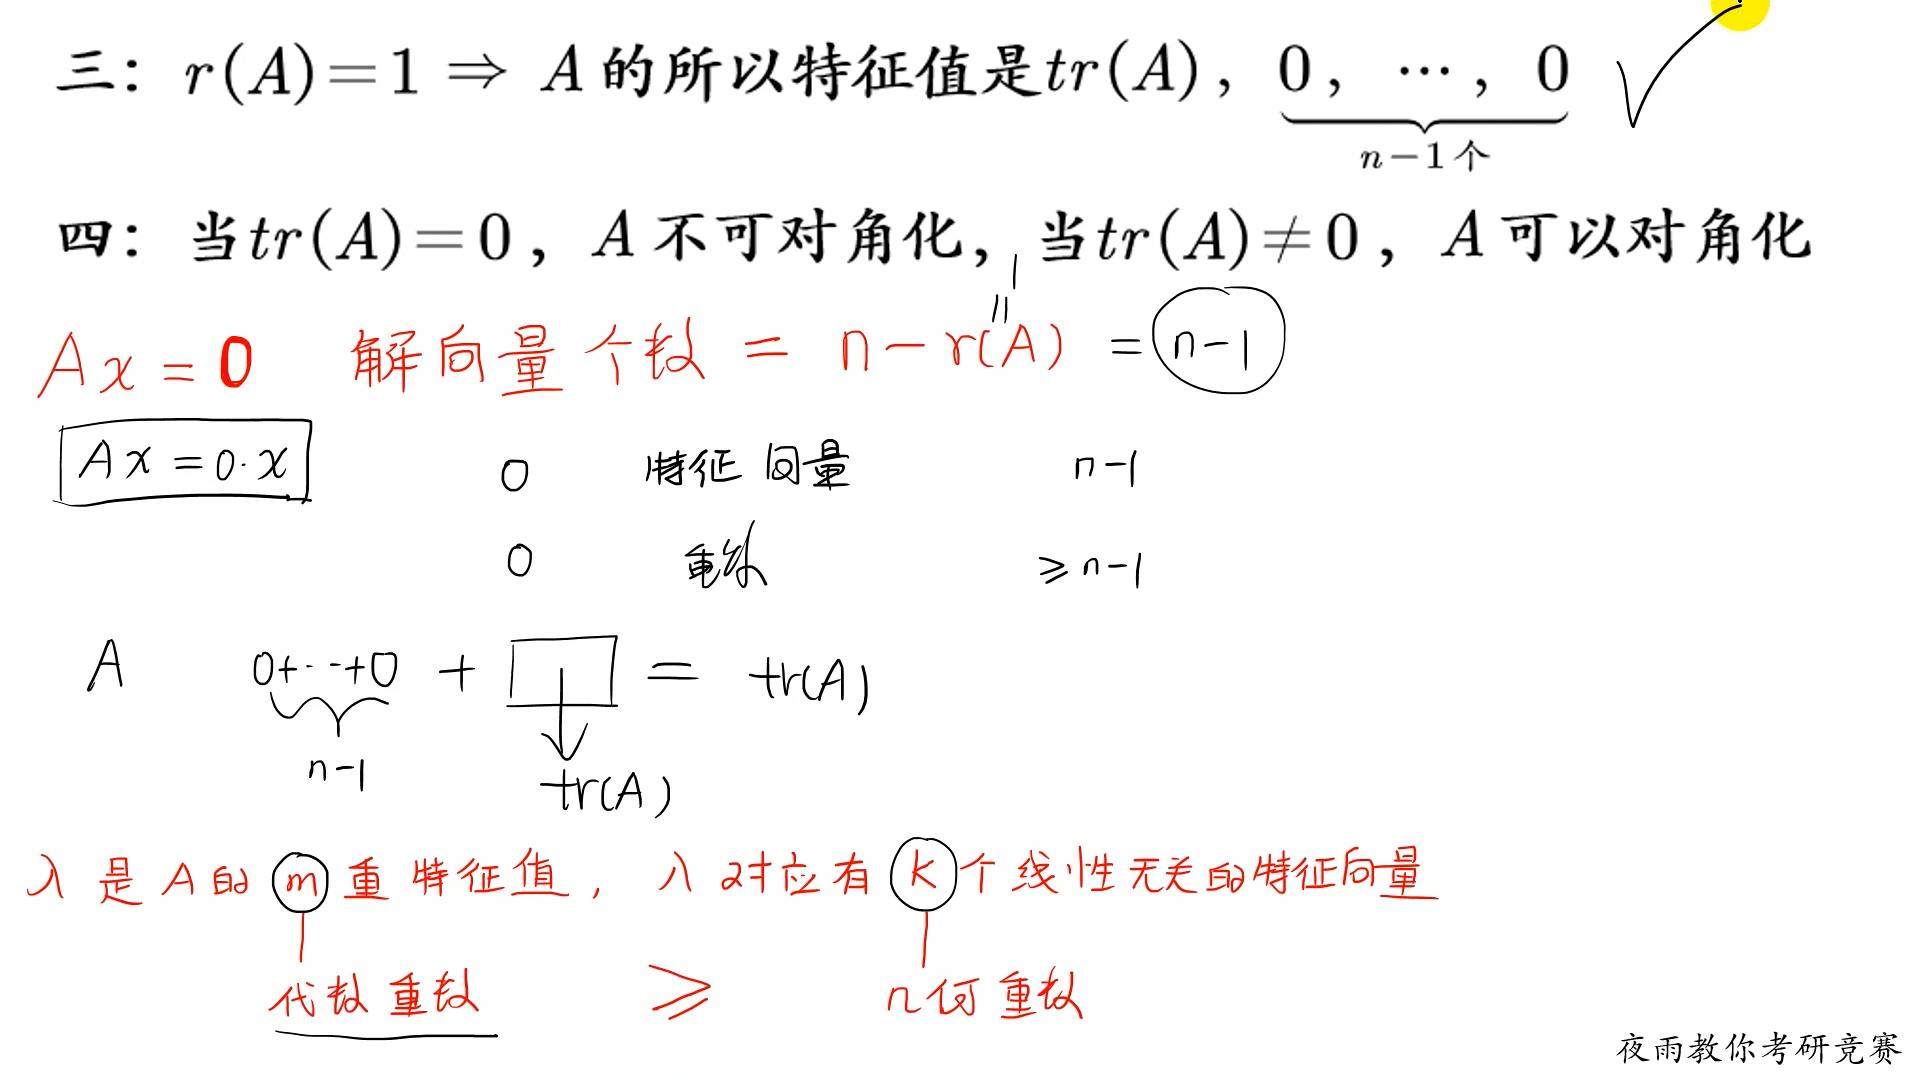 三：r(A)=1⇒ A的所以特征值是tr(A)，0，⋯，0
n－1个
四：当tr(A)=0，A不可对角化，当tr(A)≠0，A可以对角化
1
=
Ax=0 解向量个数 = n－r(A) = n-1
Ax=0·x 0 特征向量 n-1
0 重数 ≥n-1
A 0+⋯+0 + = tr(A)
n-1
tr(A)
λ是A的m重特征值，λ对应有k个线性无关的特征向量
代数重数 ≥ 几何重数
夜雨教你考研竞赛